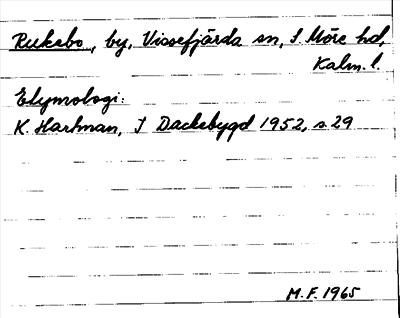 Rukebo, by, Vissefjärda sn, S. Möre hd,
Kalm. l.
Etymologi:
K. Hartman, I Dackebygd 1952, s 29
M.F. 1965